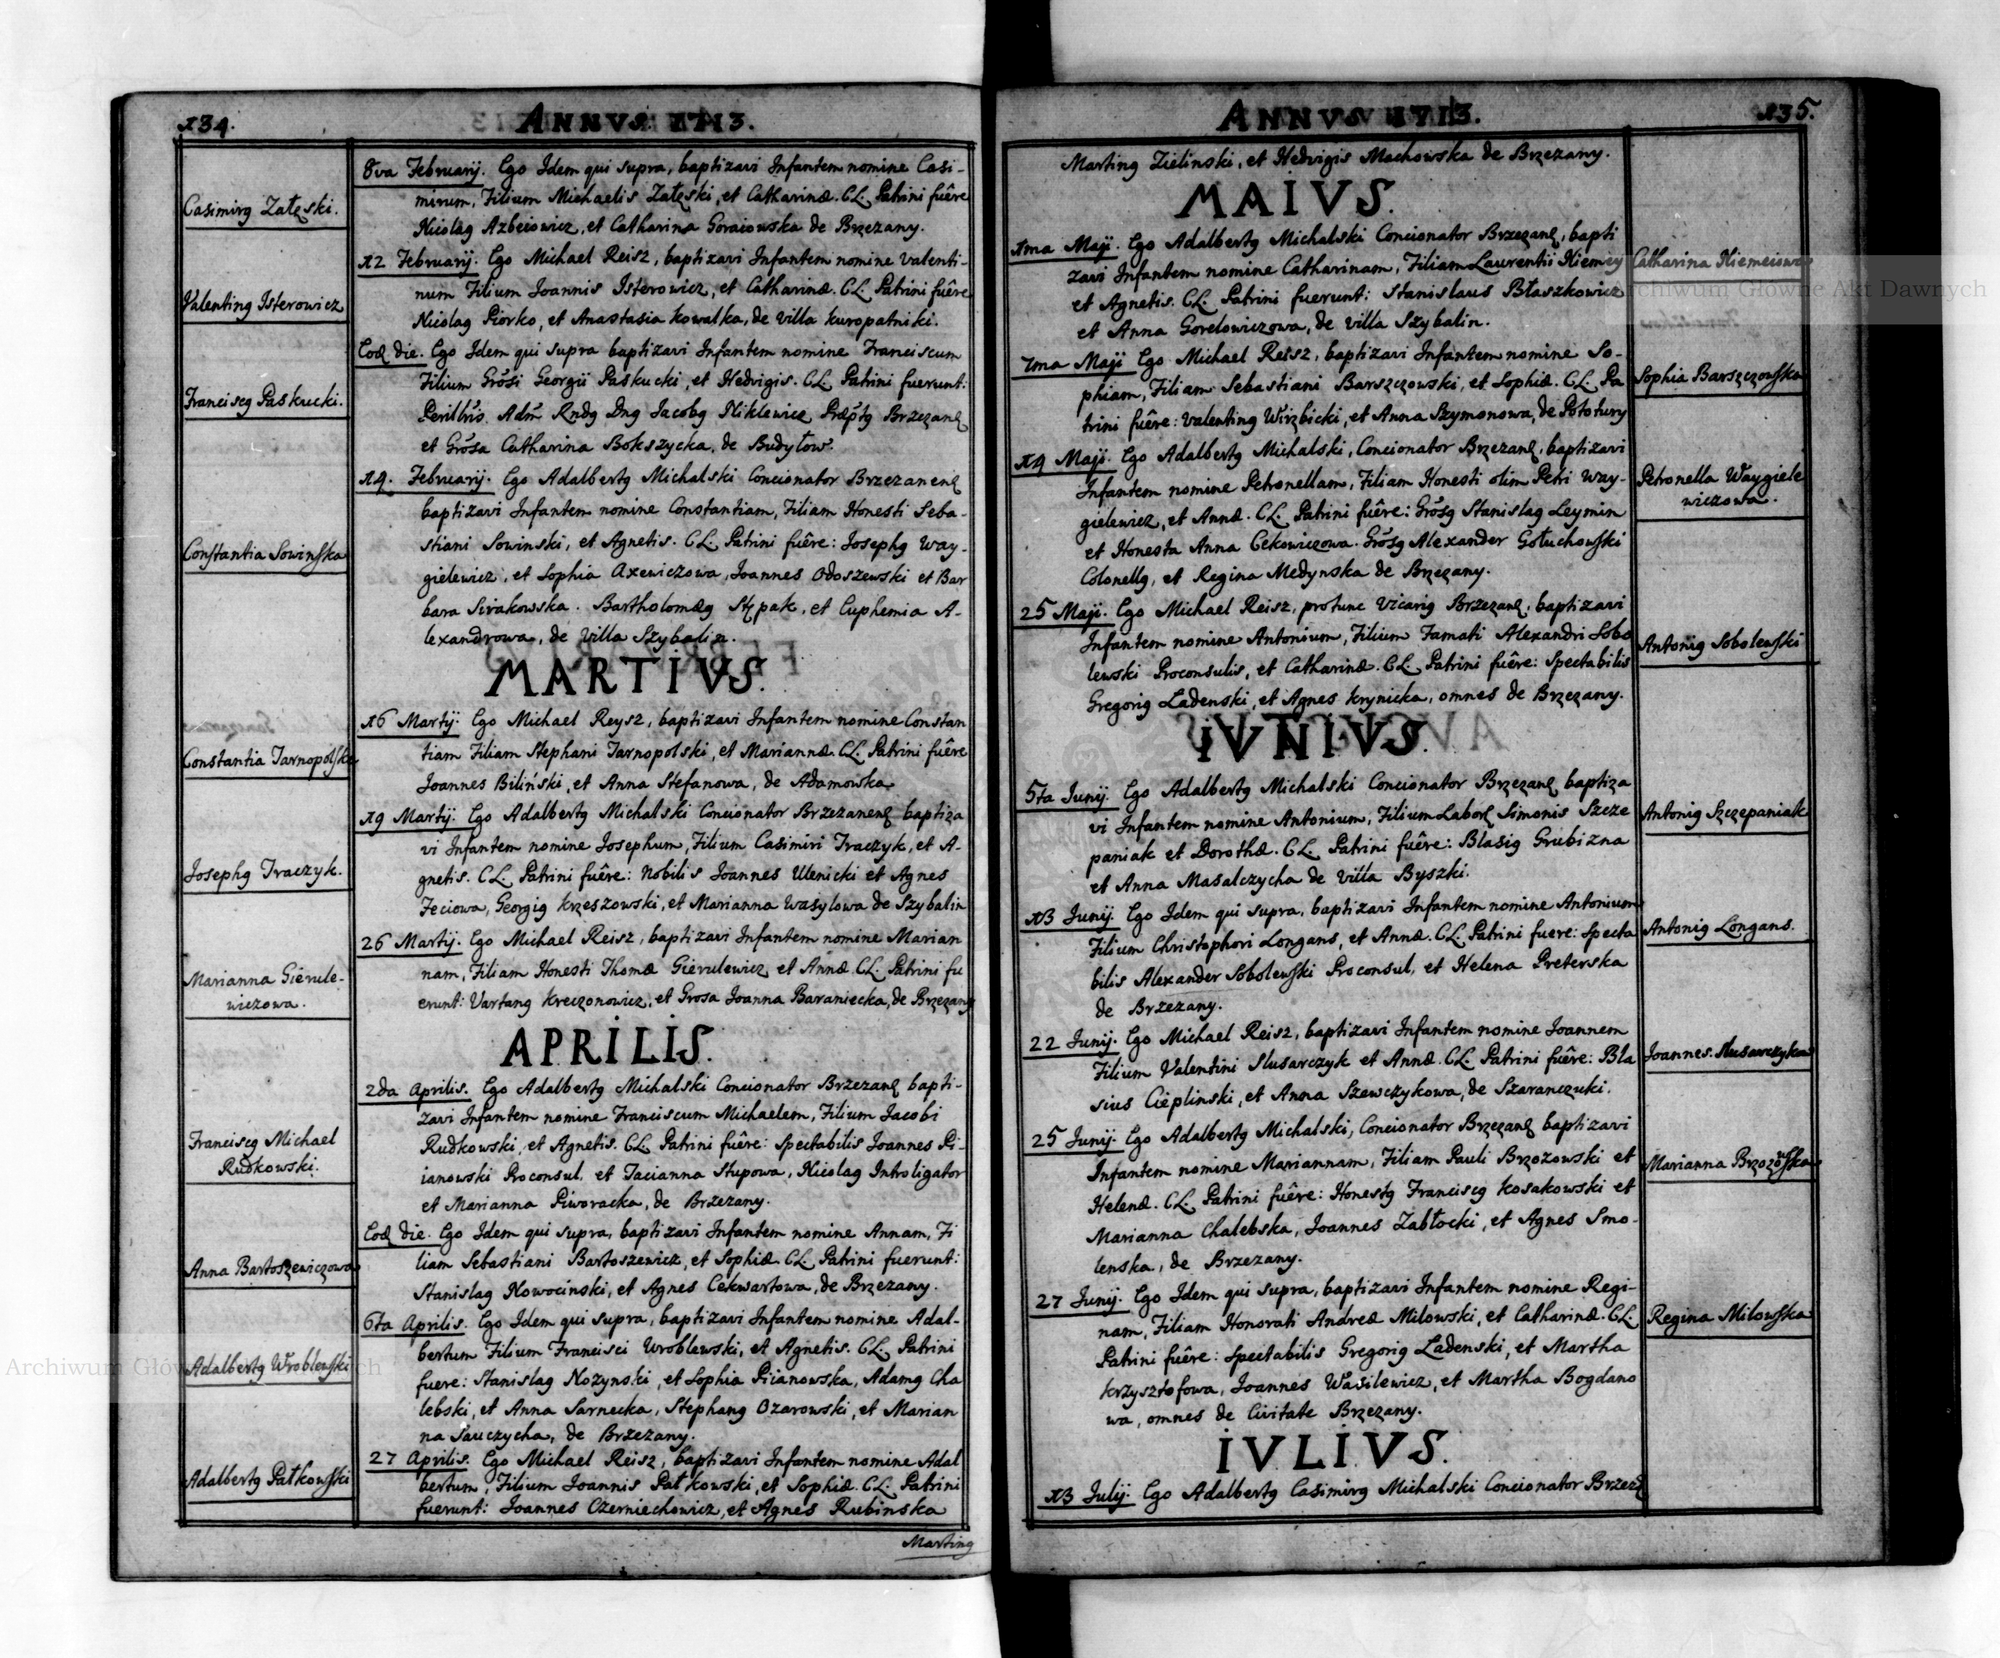 134.
ANNVS 1713.
Casimirg Załęski.
8va Februarij. Ego Idem qui supra, baptizavi Infantem nomine Casi-
mirum, Filium Michaelis Załęski, et Catharinæ. CL. Patrini fuêre
Nicolag Azbeiowicz, et Catharina Goraiowska de Brzezany.
Valenting Isterowicz
12 Februarij. Ego Michael Reisz, baptizavi Infantem nomine Valenti-
num Filium Joannis Isterowicz, et Catharinæ. CL. Patrini fuêre
Nicolag Piorko, et Anastasia Kowalka, de Villa Kuropatniki.
Francisg Paskucki.
Eod die. Ego Idem qui supra baptizavi Infantem nomine Franciscum
Filium Grõsi Georgii Paskucki, et Hedvigis. CL. Patrini fuerunt:
Perillũs. Adm̃ Rndg Dng Jacobg Miklewicz Præp̃tg Brzezanę
et Grõsa Catharina Bokszycka, de Budyłow.
Constantia Sowinska
19. Februarij. Ego Adalbertg Michalski Concionator Brzezanenę
baptizavi Infantem nomine Constantiam, Filiam Honesti Seba-
stiani Sowinski, et Agnetis. CL. Patrini fuêre: Josephg Way-
gielewicz, et Sophia Axewiczowa, Joannes Odoszewski et Bar
bara Sirakowska. Bartholomæg Stępak, et Euphemia A-
lexandrowa, de Villa Szybalin.
MARTIVS.
Constantia Tarnopolska
16 Martij. Ego Michael Reysz, baptizavi Infantem nomine Constan
tiam Filiam Stephani Tarnopolski, et Mariannæ. CL. Patrini fuêre
Joannes Biliński, et Anna Stefanowa, de Adamowka
Josephg Traczyk.
19 Martij. Ego Adalbertg Michalski Concionator Brzezanenę baptiza
vi Infantem nomine Josephum, Filium Casimiri Traczyk, et A-
gnetis. CL. Patrini fuêre: Nobilis Joannes Ulenicki et Agnes
Feciowa, Georgig Krzeszowski, et Marianna Wasylowa de Szybalin
Marianna Gierule-
wiczowa.
26 Martij. Ego Michael Reisz, baptizavi Infantem nomine Marian
nam, Filiam Honesti Thomæ Gierulewicz et Annæ. CL. Patrini fu
erunt: Vartang Kreczonowicz, et Grosa Joanna Baraniecka, de Brzezany
APRILIS.
Francisg Michael
Rudkowski.
2da Aprilis. Ego Adalbertg Michalski Concionator Brzezanę bapti-
zavi Infantem nomine Franciscum Michaelem, Filium Jacobi
Rudkowski, et Agnetis. CL. Patrini fuêre: Spectabilis Joannes Pi-
ianowski Proconsul, et Tacianna Stupowa, Nicolag Introligator
et Marianna Piworacka, de Brzezany.
Anna Bartoszewiczowa
Eod die. Ego Idem qui supra, baptizavi Infantem nomine Annam, Fi
liam Sebastiani Bartoszewicz, et Sophiæ CL. Patrini fuerunt:
Stanislag Nowocinski, et Agnes Cekwartowa, de Brzezany.
Adalbertg Wroblewski
6ta Aprilis. Ego Idem qui supra, baptizavi Infantem nomine Adal-
bertum Filium Francisci Wroblewski, et Agnetis. CL. Patrini
fuere: Stanislag Nozynski, et Sophia Piianowska, Adamg Cha
lebski, et Anna Sarnecka, Stephang Ozarowski, et Marian
na Sauczycha, de Brzezany.
Adalbertg Patkowski
27 Aprilis. Ego Michael Reisz, baptizavi Infantem nomine Adal
bertum, Filium Joannis Patkowski, et Sophiæ. CL. Patrini
fuerunt: Joannes Czerniechowicz, et Agnes Rubinska
Marting
ANNVS 1713.
135.
Marting Zielinski, et Hedvigis Machowska de Brzezany.
MAIVS.
Catharina Niemeiowa
1ma Maij. Ego Adalbertg Michalski Concionator Brzezanę, bapti
zavi Infantem nomine Catharinam, Filiam Laurentii Niemey
et Agnetis. CL. Patrini fuerunt: Stanislaus Błaszkowicz
et Anna Gorelowiczowa, de Villa Szybalin.
Sophia Barszczowska
7ma Maij Ego Michael Reisz, baptizavi Infantem nomine So-
phiam, Filiam Sebastiani Barszczowski, et Sophiæ. CL. Pa
trini fuêre: Valenting Wirzbicki, et Anna Szymonowa, de Pototury
Petronella Waygiele
wiczowa.
14 Maij. Ego Adalbertg Michalski, Concionator Brzezanę, baptizavi
Infantem nomine Petronellam, Filiam Honesti olim Petri Way-
gielewicz, et Annæ. CL. Patrini fuêre: Grõsg Stanislag Leymin
et Honesta Anna Cekowiczowa. Grõsg Alexander Gołuchowski
Colonellg, et Regina Medynska de Brzezany.
Antonig Sobolewski
25 Maij. Ego Michael Reisz, protunc Vicarig Brzezanę, baptizavi
Infantem nomine Antonium, Filium Famati Alexandri Sobo
lewski Proconsulis, et Catharinæ. CL. Patrini fuêre: Spectabilis
Gregorig Ladenski, et Agnes Krynicka, omnes de Brzezany.
IVNIVS.
Antonig Szczepaniak
5ta Junij. Ego Adalbertg Michalski Concionator Brzezanę baptiza
vi Infantem nomine Antonium, Filium Laborę Simonis Szcze
paniak et Dorothæ. CL. Patrini fuêre: Blasig Grubizna
et Anna Masalczycha de Villa Byszki.
Antonig Longans.
13 Junij. Ego Idem qui supra, baptizavi Infantem nomine Antonium
Filium Christophori Longans, et Annæ. CL. Patrini fuere: Specta
bilis Alexander Sobolewski Proconsul, et Helena Preterska
de Brzezany.
Joannes Slusarczyka
22 Junij. Ego Michael Reisz, baptizavi Infantem nomine Joannem
Filium Valentini Slusarczyk et Annæ. CL. Patrini fuêre: Bla
sius Cieplinski, et Anna Szewczykowa, de Szaranczuki.
Marianna Brzozowska
25 Junij. Ego Adalbertg Michalski, Concionator Brzezanę baptizavi
Infantem nomine Mariannam, Filiam Pauli Brzozowski et
Helenæ. CL. Patrini fuêre: Honestg Francisg Kosakowski et
Marianna Chalebska, Joannes Zabłocki, et Agnes Smo-
lenska, de Brzezany.
Regina Milowska
27 Junij. Ego Idem qui supra, baptizavi Infantem nomine Regi-
nam, Filiam Honorati Andreæ Milowski, et Catharinæ. CL.
Patrini fuêre: Spectabilis Gregorig Ladenski, et Martha
Krzysztofowa, Joannes Wasilewicz, et Martha Bogdano
wa, omnes de Civitate Brzezany.
IVLIVS.
13 Julij. Ego Adalbertg Casimirg Michalski Concionator Brzezę
Archiwum Główne Akt Dawnych
Archiwum Główne Akt Dawnych